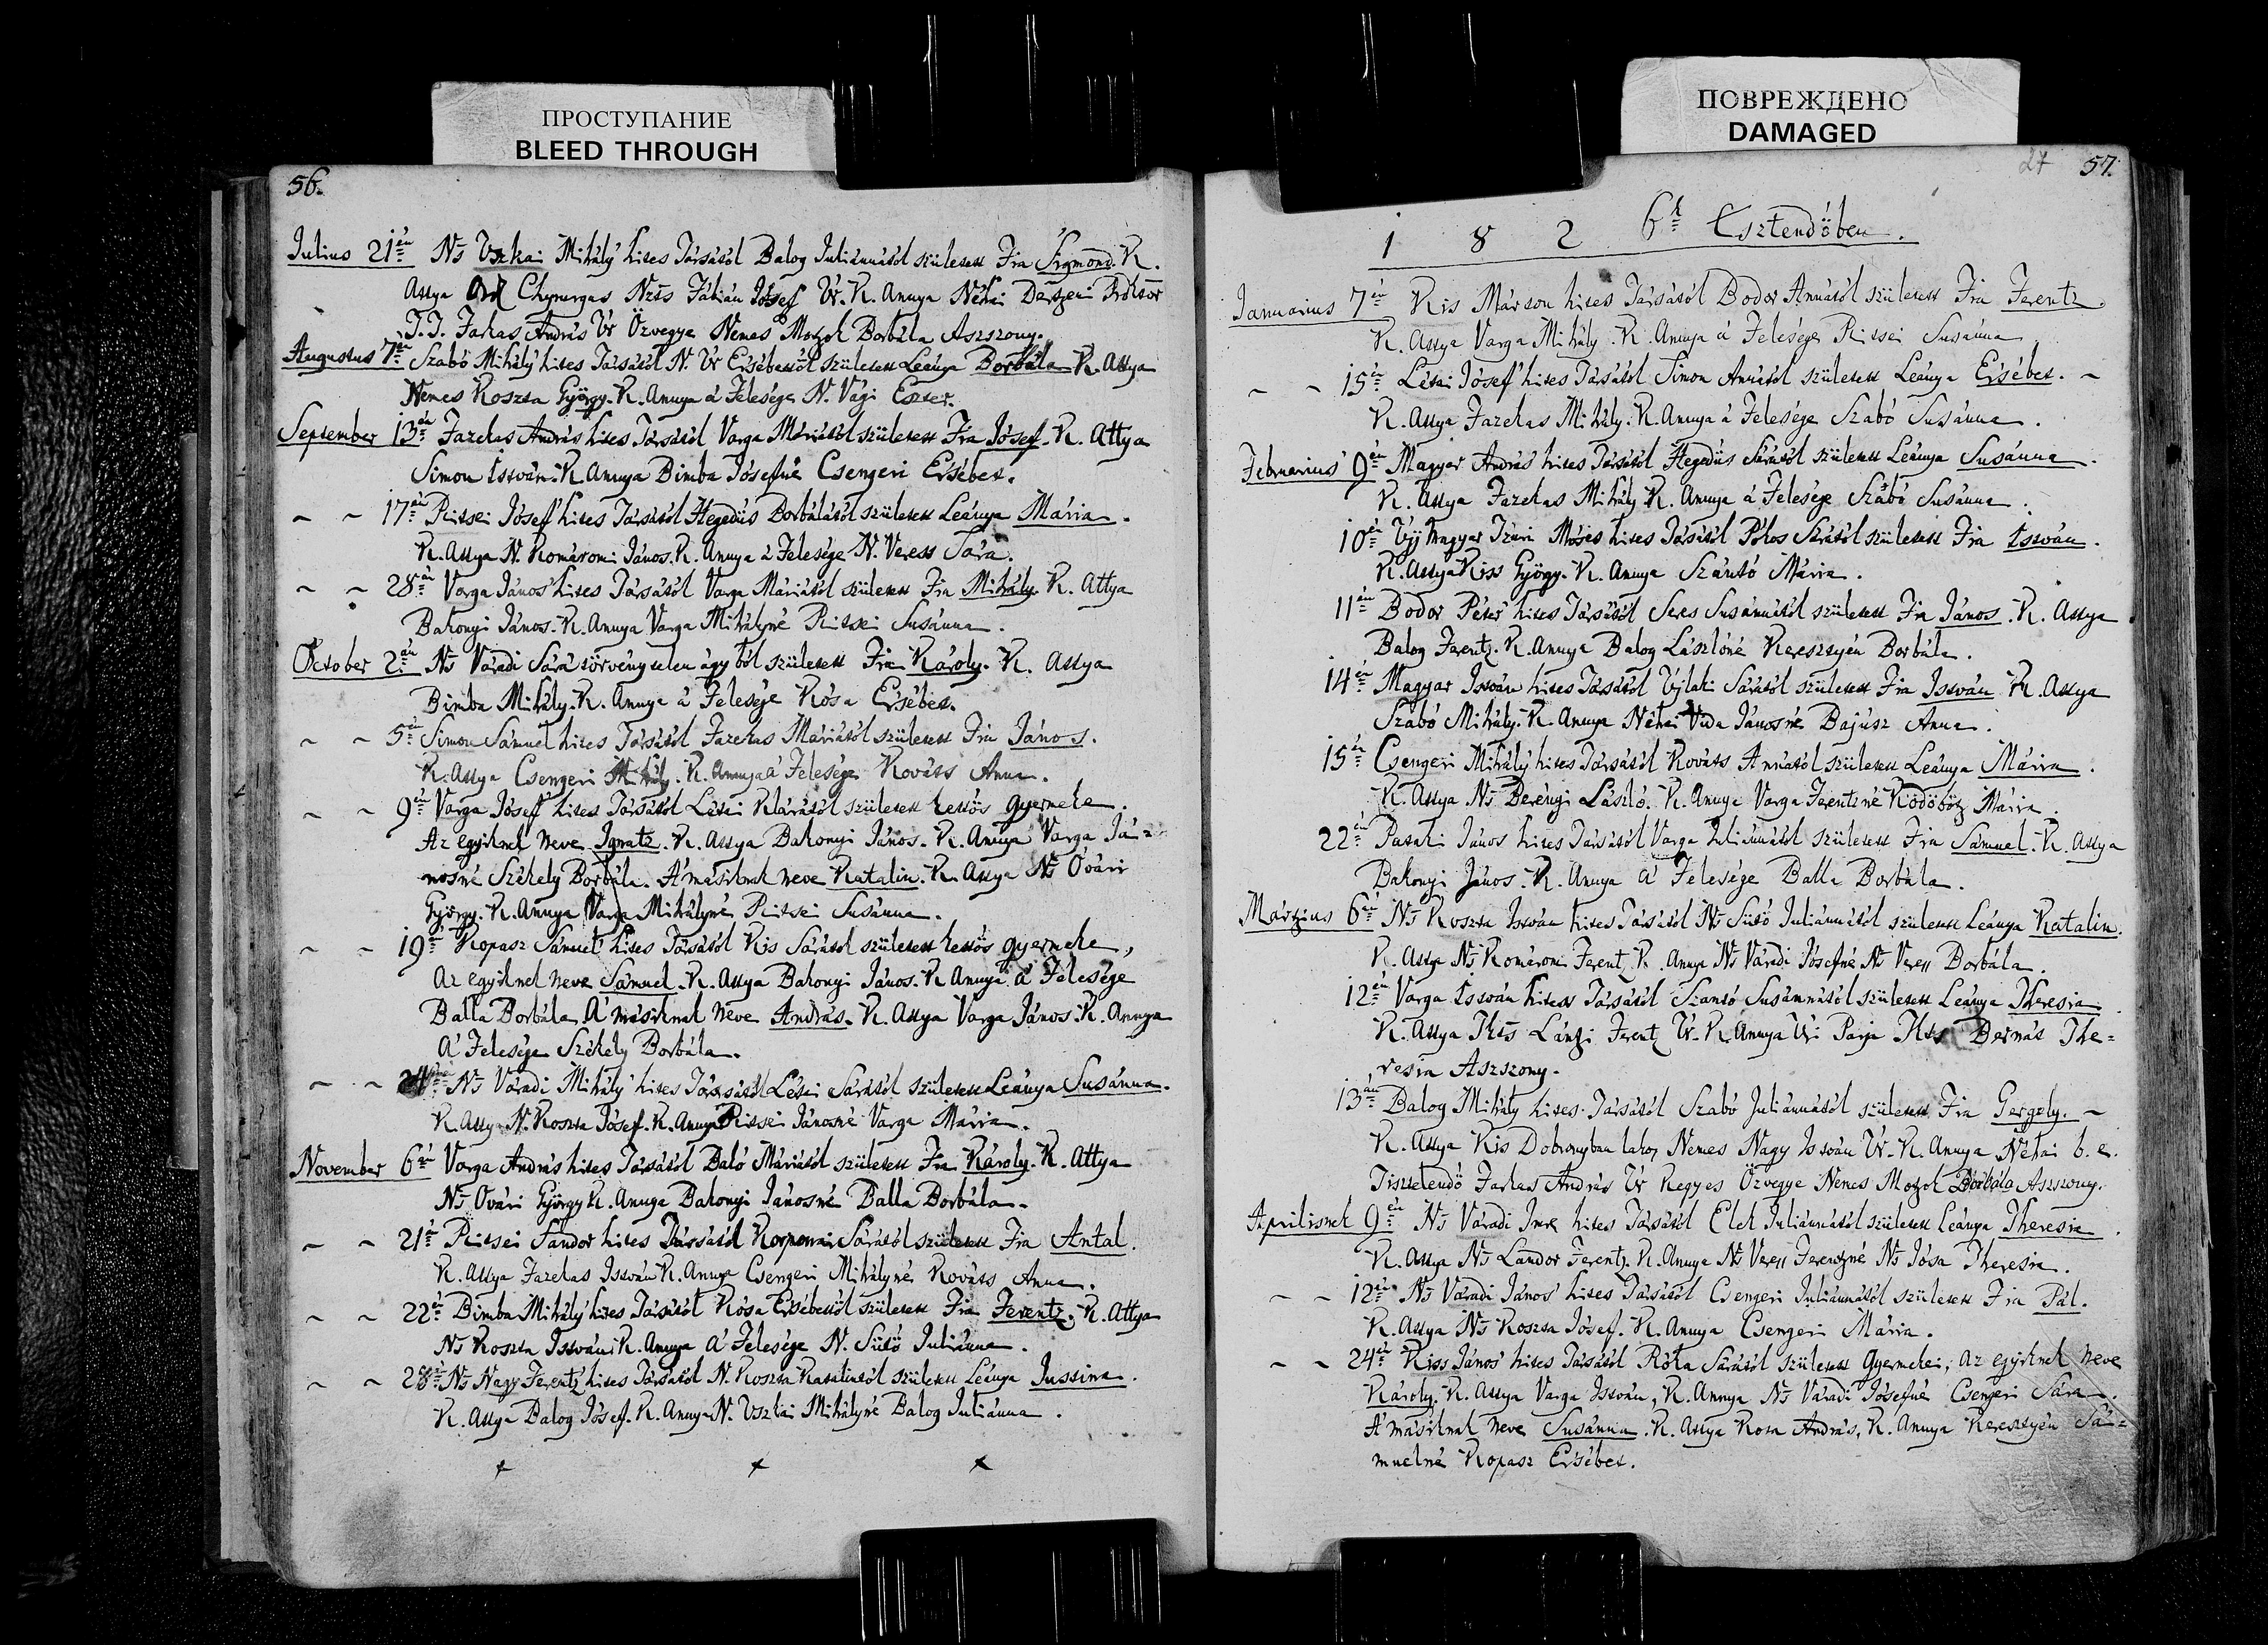 ПРОСТУПАНИЕ
BLEED THROUGH
56.
Julius 21én Ns Uszkai Mihály hites Társától Balog Juliánnától született Fia Sigmond. K.
Attya Chyrurgus Nzts Fábián Jósef Úr. K. Annya Néhai Derzseni
T. T. Farkas András Úr Özvegye Nemes Borbála Aszszony.
Augustus 7én Szabó Mihály hites Társától N. Úr Ersébettöl született Leánya Borbála K. Attya
Nemes Koszta György. K. Annya á Felesége N. Vági Eszter.
September 13án Fazekas András hites Társától Varga Máriától született Fia Jósef. K. Attya
Simon István. K. Annya Bimba Jósefné Csengeri Ersébet.
~ ~ 17én Ritsei Jósef hites Társától Hegedüs Borbálától született Leánya Mária.
K. Attya N. Komáromi János. K. Annya á Felesége N. Veress Sára.
~ ~ 28án Varga János hites Társától Varga Máriától született Fia Mihály. K. Attya
Bakonyi János. K. Annya Varga Mihályné Ritsei Susánna.
October 2án Ns Váradi Sárá törvénytelen ágy ból született Fia Károly. K. Attya
Bimba Mihály. K. Annya á Felesége Rósa Ersébet.
~ ~ 5én Simon Sámuel hites Társától Fazekas Máriától született Fia János.
K. Attya Csengeri Mihály. K. Annya á Felesége Kováts Anna.
~ ~ 9én Varga Jósef hites Társától Létai Klárától született kettös gyermeke.
Az egyiknek neve Ignatz. K. Attya Bakonyi János. K. Annya Varga Já-
nosné Székely Borbála. A' másiknak neve Katalin. K. Attya Ns Óvári
György. K. Annya Varga Mihályné Ritsei Susánna.
~ ~ 19én Kopasz Sámuel hites Társától Kis Sárától született kettös gyermeke,
Az egyiknek neve Sámuel. K. Attya Bakonyi János. K. Annya á Felesége
Balla Borbála. A' másiknak neve András. K. Attya Varga János. K. Annya
A' Felesége Székely Borbála.
~ ~ 24én Ns Váradi Mihály hites Társától Létai Sárától született Leánya Susánna.
K. Attya N. Koszta Jósef. K. Annya Ritsei Jánosné Varga Mária.
November 6án Varga András hites Társától Baló Máriától született Fia Károly. K. Attya
Ns Óvári György K. Annya Bakonyi Jánosné Balla Borbála.
~ ~ 21én Ritsei Sándor hites Társától Sárától született Fia Antal.
K. Attya Fazekas István K. Annya Csengeri Mihályné Kováts Anna.
~ ~ 22én Bimba Mihály hites Társától Rósa Ersébettöl született Fia Ferentz. K. Attya
Ns Koszta István. K. Annya A' Felesége N. Sütö Juliánna.
~ ~ 28án Ns Nagy Ferentz hites Társától N. Koszta Katalintól született Leánya Jussina.
K. Attya Balog Jósef. K. Annya N. Uszkai Mihályné Balog Juliánna.
ПОВРЕЖДЕНО
DAMAGED
27 57.
1 8 2 6k Esztendöben.
Januarius 7én Kis Márton hites Társától Bodor Annától született Fia Ferentz.
K. Attya Varga Mihály. K. Annya á Felesége Ritsei Susánna
~ ~ 15én Létai Jósef hites Társától Simon Annától született Leánya Ersébet. ~
K. Attya Fazekas Mihály. K. Annya á Felesége Szabó Susánna.
Februarius 9én Magyar András hites Társától Hegedüs Sárától született Leánya Susánna.
K. Attya Fazekas Mihály K. Annya á Felesége Szabó Susánna.
10én Új Magyar Izúri Móses hites Társától Pókos Sárától született Fia István.
K. Attya Kiss György. K. Annya Szántó Mária.
11én Bodor Péter hites Társától Seres Susánnától született Fia János. K. Attya
Balog Ferentz. K. Annya Balog Lászlóné Keresztyén Borbála.
14én Magyar István hites Társától Újlaki Sárától született Fia István. K. Attya
Szabó Mihály. K. Annya Néhai Vida Jánosné Bajúsz Anna.
15én Csengeri Mihály hites Társától Kováts Annától született Leánya Mária.
K. Attya Ns Berényi László. K. Annya Varga Ferentzné Ködöbötz Mária.
22én Pataki János hites Társától Varga Juliánnától született Fia Sámuel. K. Attya
Bakonyi János. K. Annya A' Felesége Balla Borbála.
Mártzius 6án Ns Koszta István hites Társától Ns Sütö Juliánnától született Leánya Katalin.
K. Attya Ns Komáromi Ferentz. K. Annya Ns Váradi Jósefné Ns Veress Borbála.
12én Varga István hites Társától Szántó Susánnától született Leánya Theresia.
K. Attya Lántzi Ferentz Úr. K. Annya Úri Párja Bernát The=
resia Aszszony.
13án Balog Mihály hites Társától Szabó Juliánnától született Fia Gergely. ~
K. Attya Kis Dobronyban lakos Nemes Nagy István Úr. K. Annya Néhai b. e.
Tisztelendö Farkas András Úr kegyes Özvegye Nemes Borbála Aszszony.
Aprilisnek 9én Ns Váradi Imre hites Társától Elek Juliánnától született Leánya Theresia.
K. Attya Ns Landor Ferentz. K. Annya Ns Veress Ferentzné Ns Jósa Theresia.
~ ~ 12én Ns Váradi János hites Társától Csengeri Juliánnától született Fia Pál.
K. Attya Ns Koszta Jósef. K. Annya Csengeri Mária.
~ ~ 24én Kiss János hites Társától Róka Sárától született Gyermekei, az egyiknek neve
Károly. K. Attya Varga István, K. Annya Ns Váradi Jósefné Csengeri Sára.
A' másiknak neve Susánna. K. Attya Kosa András, K. Annya Keresztyén Sá=
muelné Kopasz Ersébet.